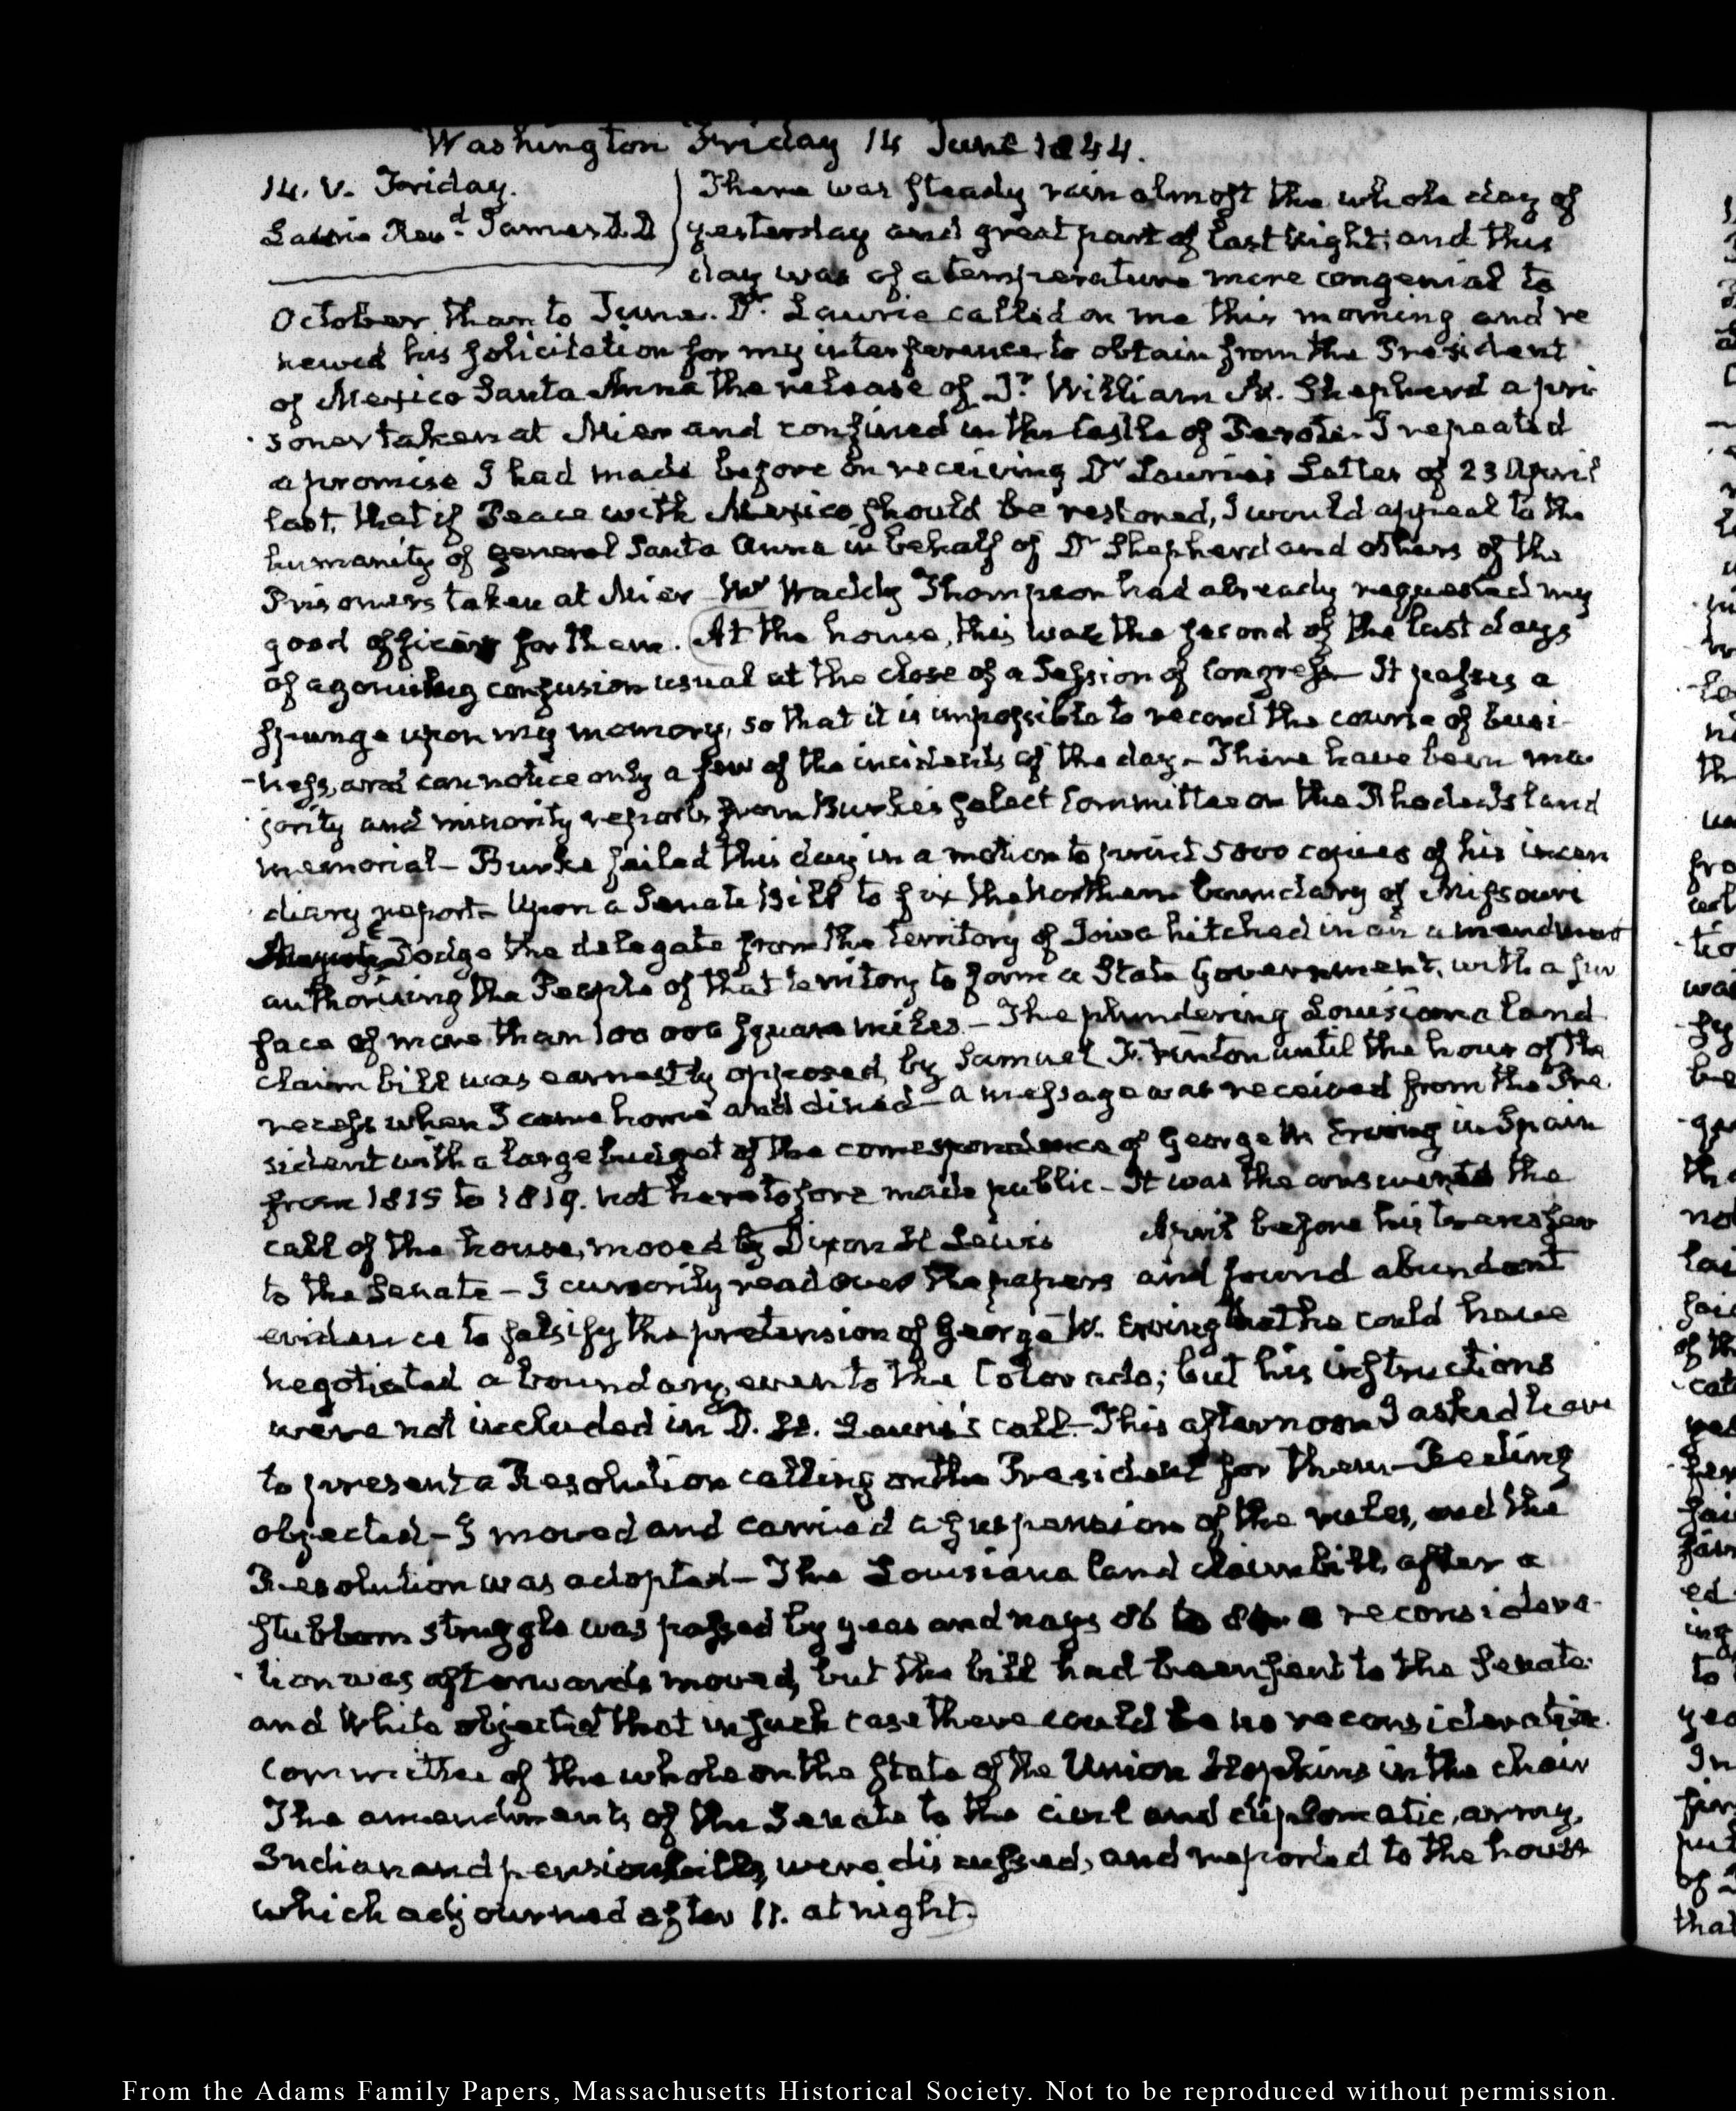 Washington Friday 14 June 1844.
14. V. Friday.
Laurie Revd. James D.D
There was steady rain almost the whole day of
yesterday and great part of last Night; and this
day was of a temperature more congenial to
October, than to June. Dr. Laurie called on me this morning and re
newed his solicitation for my interference to obtain from the President
of Mexico Santa Anna the release of Dr. William M. Shepherd a pri
soner taken at Mier and confined in the Castle of Perote. I repeated
a promise I had made before on receiving Dr Laurie's Letter of 23 April
last, that if Peace with Mexico should be restored, I would appeal to the
humanity of general Santa Anna in behalf of Dr Shepherd and others of the
Prisoners taken at Mier Waddy Thompson had already requested my
good offices for them. At the house, this was the second of the last days
of agonising confusion usual at the close of a Session of Congress— It passes a
spunge upon my memory, so that it is impossible to record the course of busi-
ness, and can notice only a few of the incidents of the day— There have been ma-
jority and minority reports from Burke's select Committee on the Rhode Island
memorial— Burke failed this day in a motion to print 5000 copies of his incen
diary report— Upon a Senate Bill to fix the Northern boundary of Missouri
Dodge the delegate from the Territory of Iowa hitched in an amendment
authorising the People of that territory to form a State Government, with a sur
face of more than 100 000 square miles.— The plundering Louisiana land
claim bill was earnestly opposed by Samuel F. Vinton until the hour of the
recess when I came home and dined— a message was received from the Pre
sident with a large budget of the correspondence of George W. Erving in Spain
from 1815 to 1819. not heretofore made public— It was the answer to the
call of the house, moved by Dixon H Lewis April before his transfer
to the Senate— I cursorily read over the papers and found abundant
evidence to falsify the pretension of George W. Erving that he could have
negotiated a boundary, even to the Colorado; but his instructions
were not included in D. H. Lewis's call— This afternoon I asked leave
to present a Resolution calling on the President for them— 
objected— I moved and carried a suspension of the rules, and the
Resolution was adopted— The Louisiana land claim bill, after a
stubborn struggle was passed by yeas and nays 86 to a reconsidera-
tion was afterwards moved, but the bill had been sent to the Senate
and White objected that in such case there could be no reconsideration.
Committee of the whole on the state of the Union Hopkins in the chair
The amendments of the Senate to the civil and diplomatic, army,
Indian and pension bills, were discussed, and reported to the house
which adjourned after 11. at night.
From the Adams Family Papers, Massachusetts Historical Society. Not to be reproduced without permission.